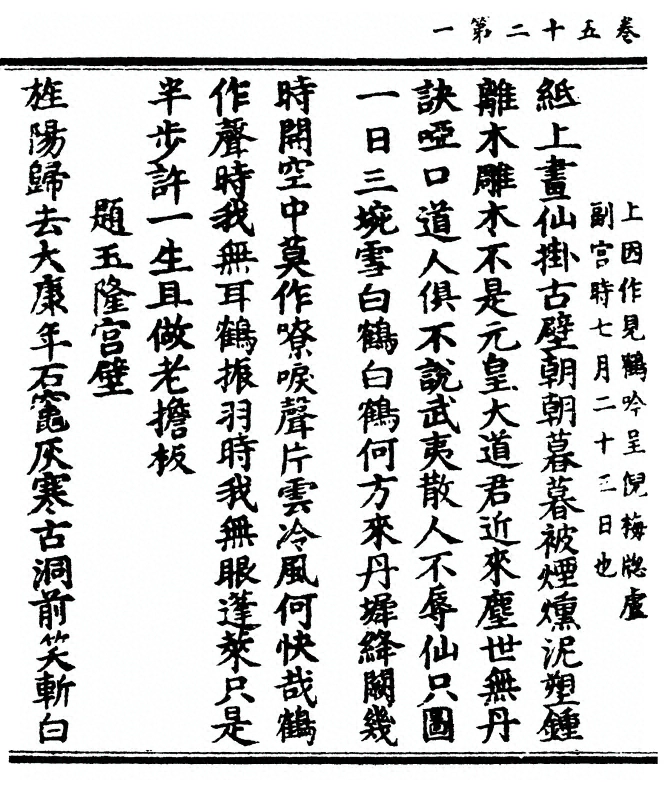 卷五十二第一
上因作見鶴吟呈倪梅牕盧
副宫時七月二十三日也
紙上畫仙掛古壁朝朝暮暮被煙燻泥塑鍾
離木雕木不是元皇大道君近來塵世無丹
訣啞口道人俱不說武夷散人不辱仙只圖
一日三埦雪白鶴白鶴何方來丹墀絳闕幾
時開空中莫作嘹唳聲片雲冷風何快哉鶴
作聲時我無耳鶴振羽時我無眼蓬萊只是
半步許一生且做老擔板
題玉隆宫壁
旌陽歸去大康年石竈灰寒古洞前笑斬白